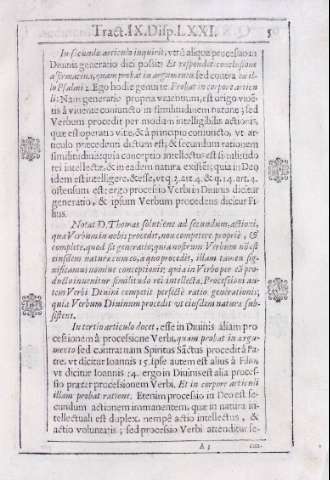 Tract. IX. Disp. LXXI.
In secundo articulo inquirit, utrũ aliqua processio in
Divinis generatio dici possit? Et respondet conclusione
affirmativa, quam probat in argumento sed contra in il-
lo Psalmi 2. Ego hodie genui te. Probat in corpore articu-
li: Nam generatio propria viventium, est origo vivẽ-
tis à vivente coniuncto in similitudinem naturæ; sed
Verbum procedit per modum intelligibilis actionis,
quæ est operatio vitæ, & à principio coniuncto, ut ar-
ticulo præcedenti dictum est; & secundum rationem
similitudinis: quia conceptio intellectus est similitudo
rei intellectæ, & in eadem natura existẽs; quia in Deo
idem est intelligere, & esse, ex q. 2. art. 4. & q. 14. art. 4.
ostensum est: ergo processio Verbi in Divinis dicitur
generatio, & ipsum Verbum procedens dicitur Fi-
lius.
Notat D. Thomas solutione ad secundum, actioni,
qua Verbum in nobis procedit, non competere propriè, &
completè, quod sit generatio; quia nostrum Verbum nõ est
eiusdem naturæ cum eo, a quo procedit, illam tamen sig-
nificamus nomine conceptionis; quia in Verbo per eã pro-
ducto invenitur similitudo rei intellectæ. Processioni au-
tem Verbi Divini competit perfectè ratio generationis;
quia Verbum Divinum procedit ut eiusdem naturæ sub-
sistens.
In tertio articulo docet, esse in Divinis aliam pro-
cessionem à processione Verbi, quam probat in argu-
mento sed contra: nam Spiritus Sãctus procedit à Pa-
tre, ut dicitur Ioannis 15. ipse autem est alius à Filio,
ut dicitur Ioannis 14. ergo in Divinis est alia proces-
sio præter processionem Verbi. Et in corpore articuli
illam probat ratione. Etenim processio in Deo est se-
cundùm actionem immanentem, quæ in natura in-
tellectuali est duplex, nempè actio intellectus, &
actio voluntatis; sed processio Verbi attenditur se-
A 3
cun-